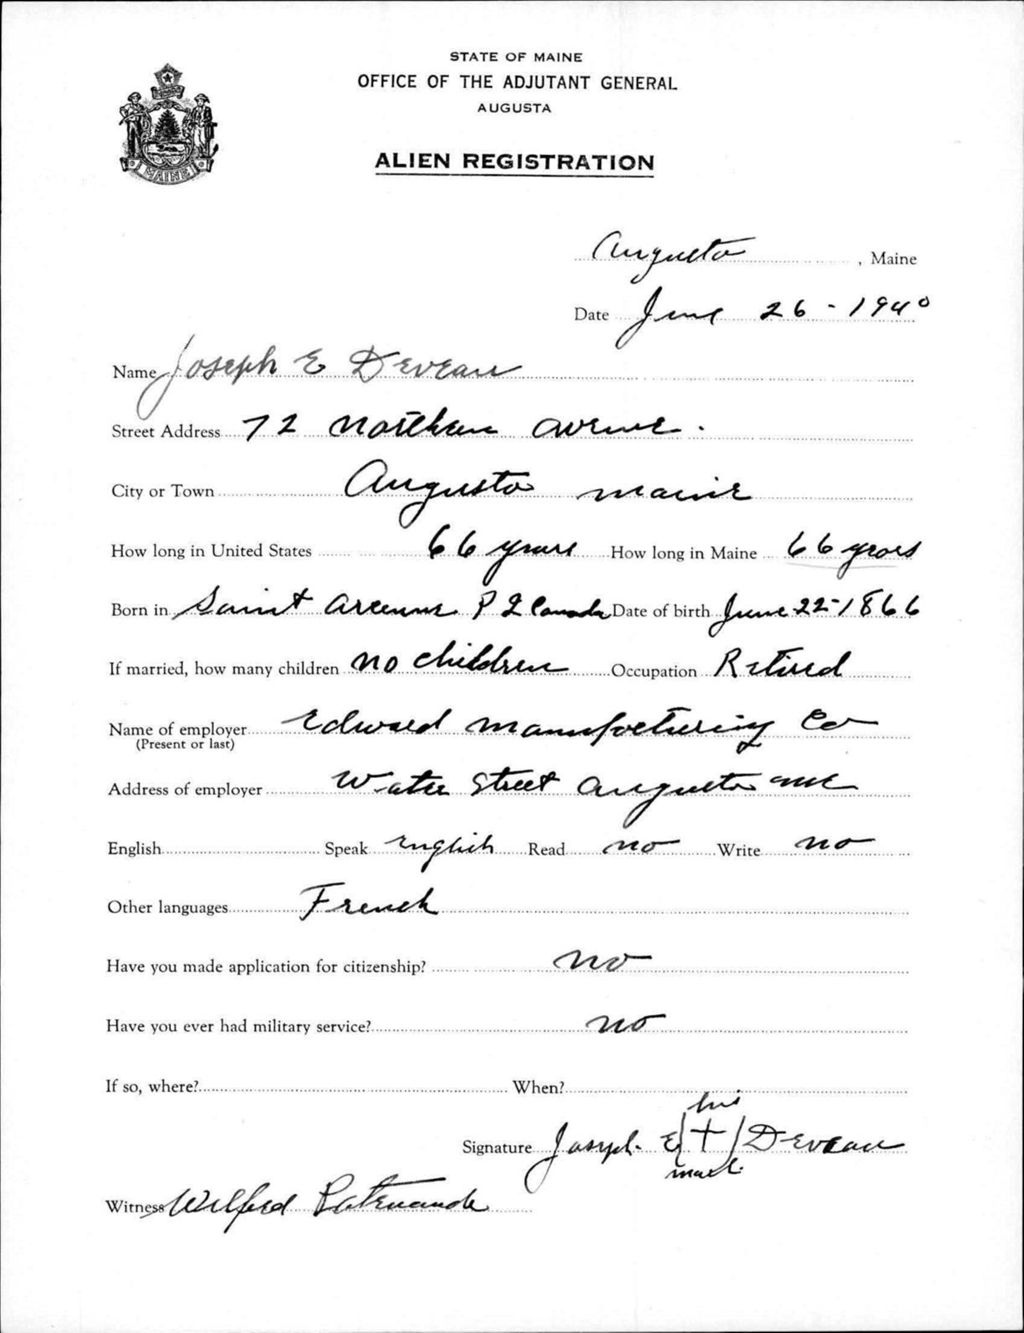 STATE OF MAINE
OFFICE OF THE ADJUTANT GENERAL
AUGUSTA
ALIEN REGISTRATION
MAINE
Augusta, Maine
Date June 26-1940
Name Joseph E Deveau
Street Address 72 Northern Avenue.
City or Town Augusta Maine
How long in United States 66 years How long in Maine 66 years
Born in Saint P Canada Date of birth June 22-1866
If married, how many children no children Occupation Retired
Name of employer Edward Manufacturing Co
(Present or last)
Address of employer Water Street Augusta Me
English Speak English Read no Write no
Other languages French
Have you made application for citizenship? no
Have you ever had military service? no
If so, where? When?
his
Signature Joseph E (+) Deveau
mark
Witness Wilfred Patenaude